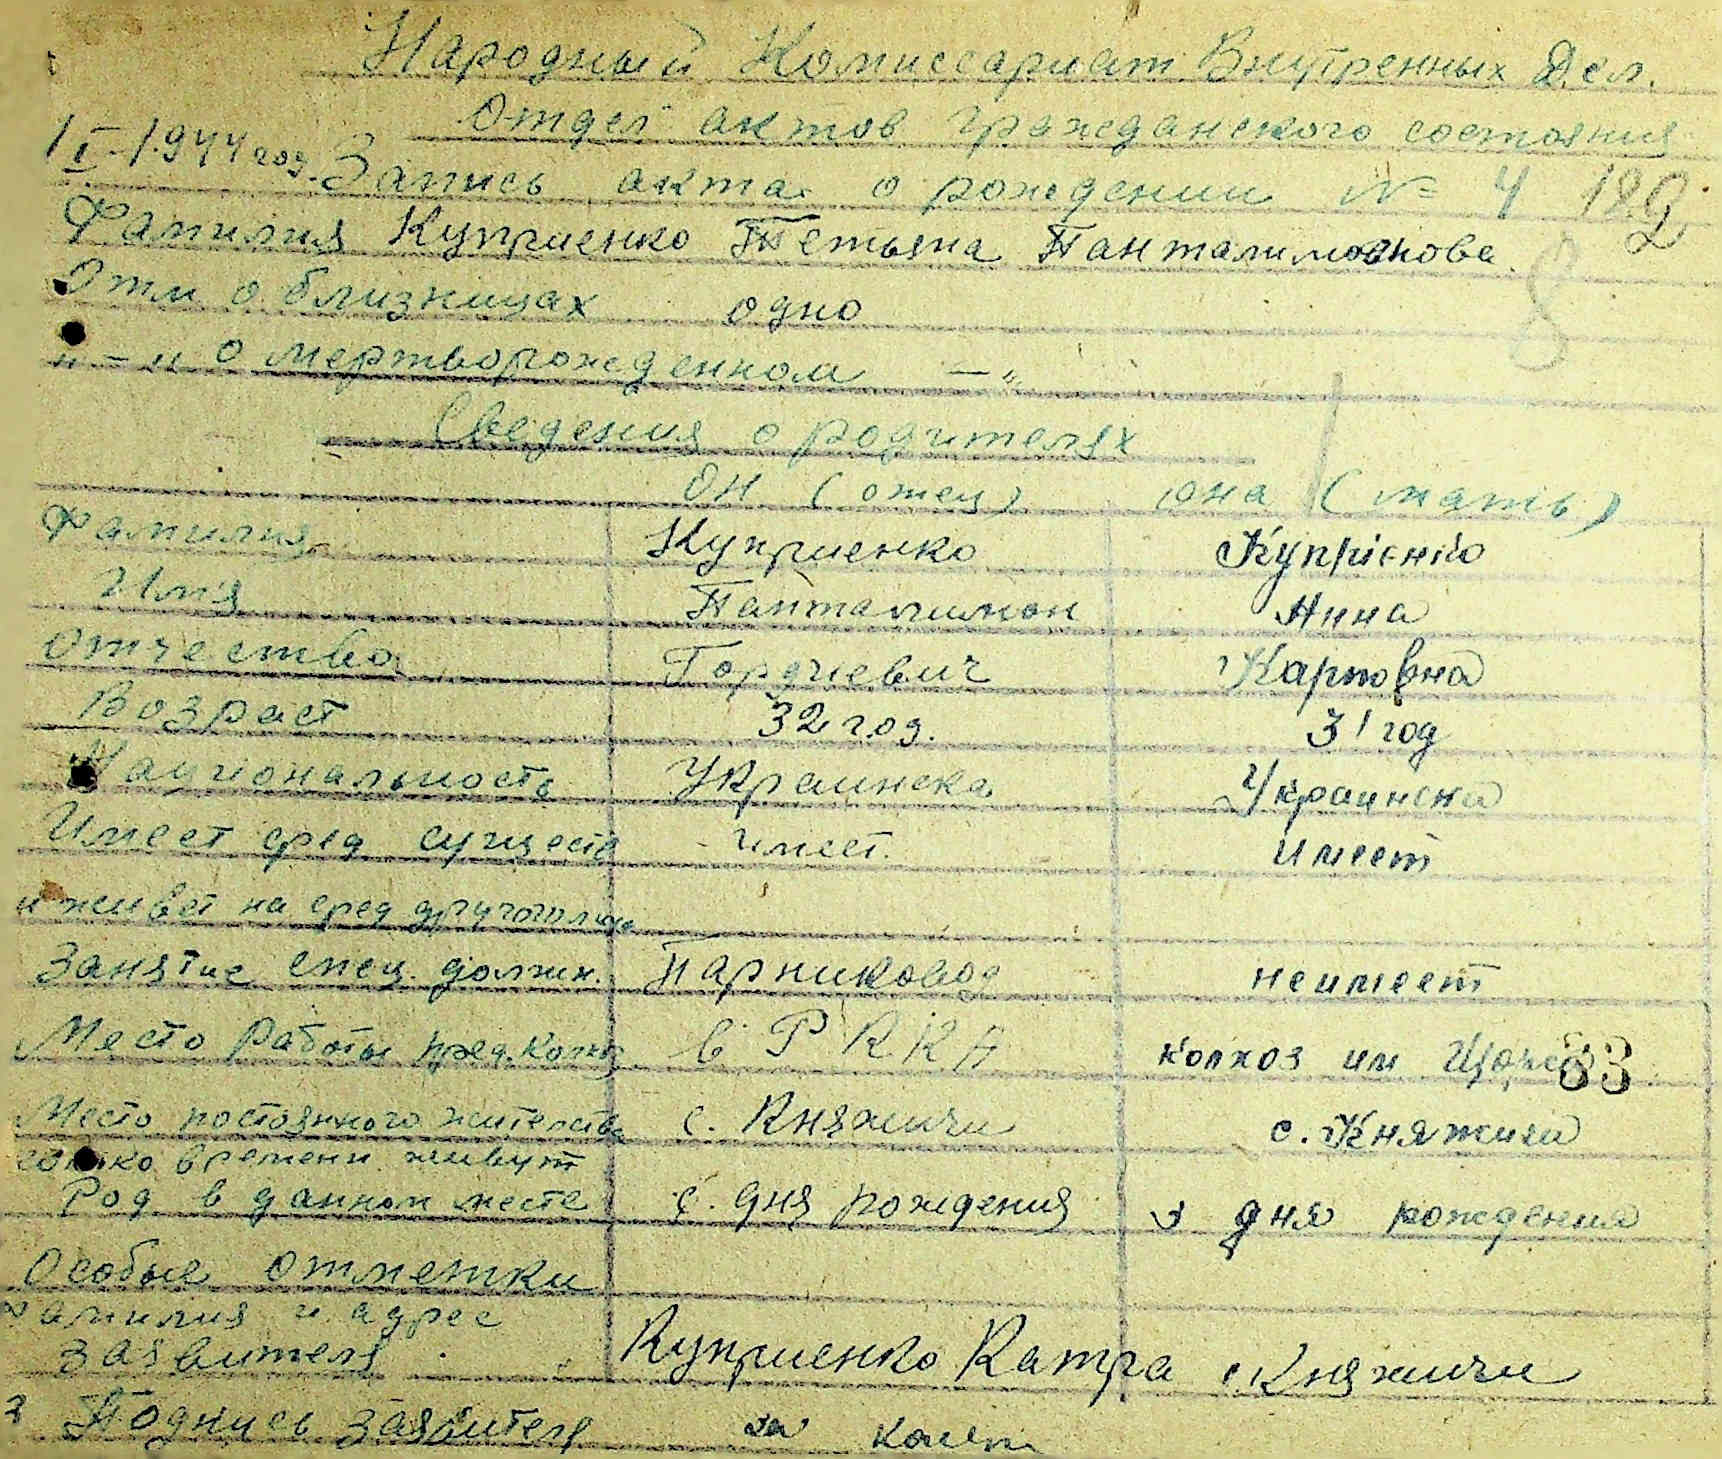 Народный Комиссариат Внутренных Дел.
Отдел актов гражданского состояния
1 I - 1944 год. Запись акта о рождении № 4 182
Фамилия Куприенко Тетьяна Панталимоновна
8
Отм о близницах одно
"–" о мертворожденном –"
Сведения о родителях
Он (отец) она (мать)
Фамилия Куприенко Купрієнко
Имя Панталимон Нина
Отчество Гордиевич Карповна
Возраст 32 год. 31 год
Националность Украинска Украинска
Имеет сред сущест имеет. имеет
и живет на сред другого лица
Занятие спец. должн. Парниковод неимеет
Место работы пред. Колхоз в Р К К А колхоз им Щорса 83
Место постоянного жительства с. Княжичи с. Княжичи
сколко времени живут
Род в данном месте с. дня рождения з дня рождения
Особые отметки
Фамилия и адрес
заявителя Куприенко Катра с Княжичи
Подпись заявителя